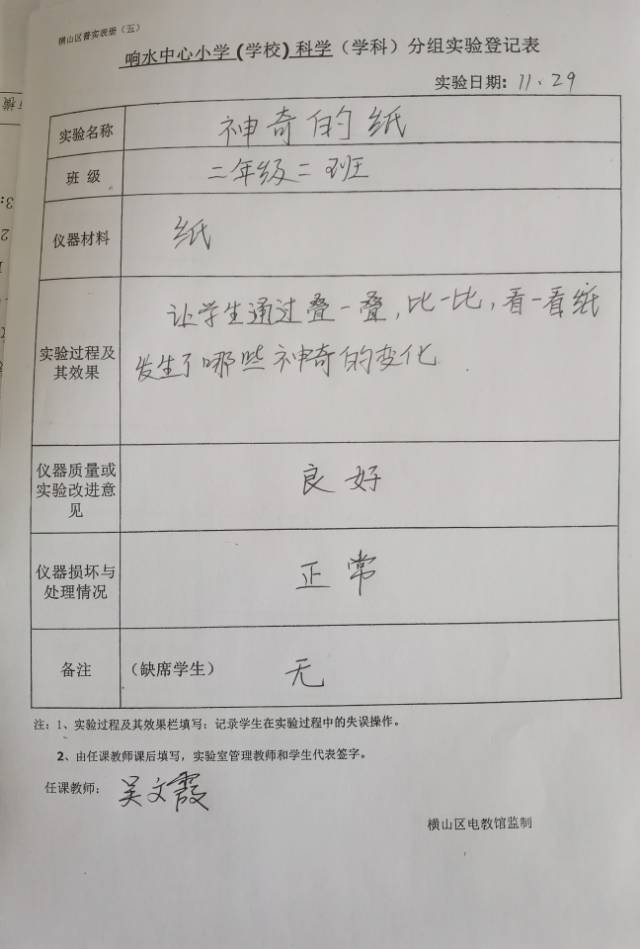 横山区普实表册（五）
响水中心小学 (学校) 科学（学科）分组实验登记表
实验日期: 11.29
实验名称 神奇的纸
班 级 二年级二班
仪器材料 纸
实验过程及其效果
让学生通过叠一叠,比一比,看一看纸
发生了哪些神奇的变化.
仪器质量或实验改进意见 良好
仪器损坏与处理情况 正常
备注 （缺席学生） 无
注：1、实验过程及其效果栏填写：记录学生在实验过程中的失误操作。
2、由任课教师课后填写，实验室管理教师和学生代表签字。
任课教师： 吴文霞
横山区电教馆监制